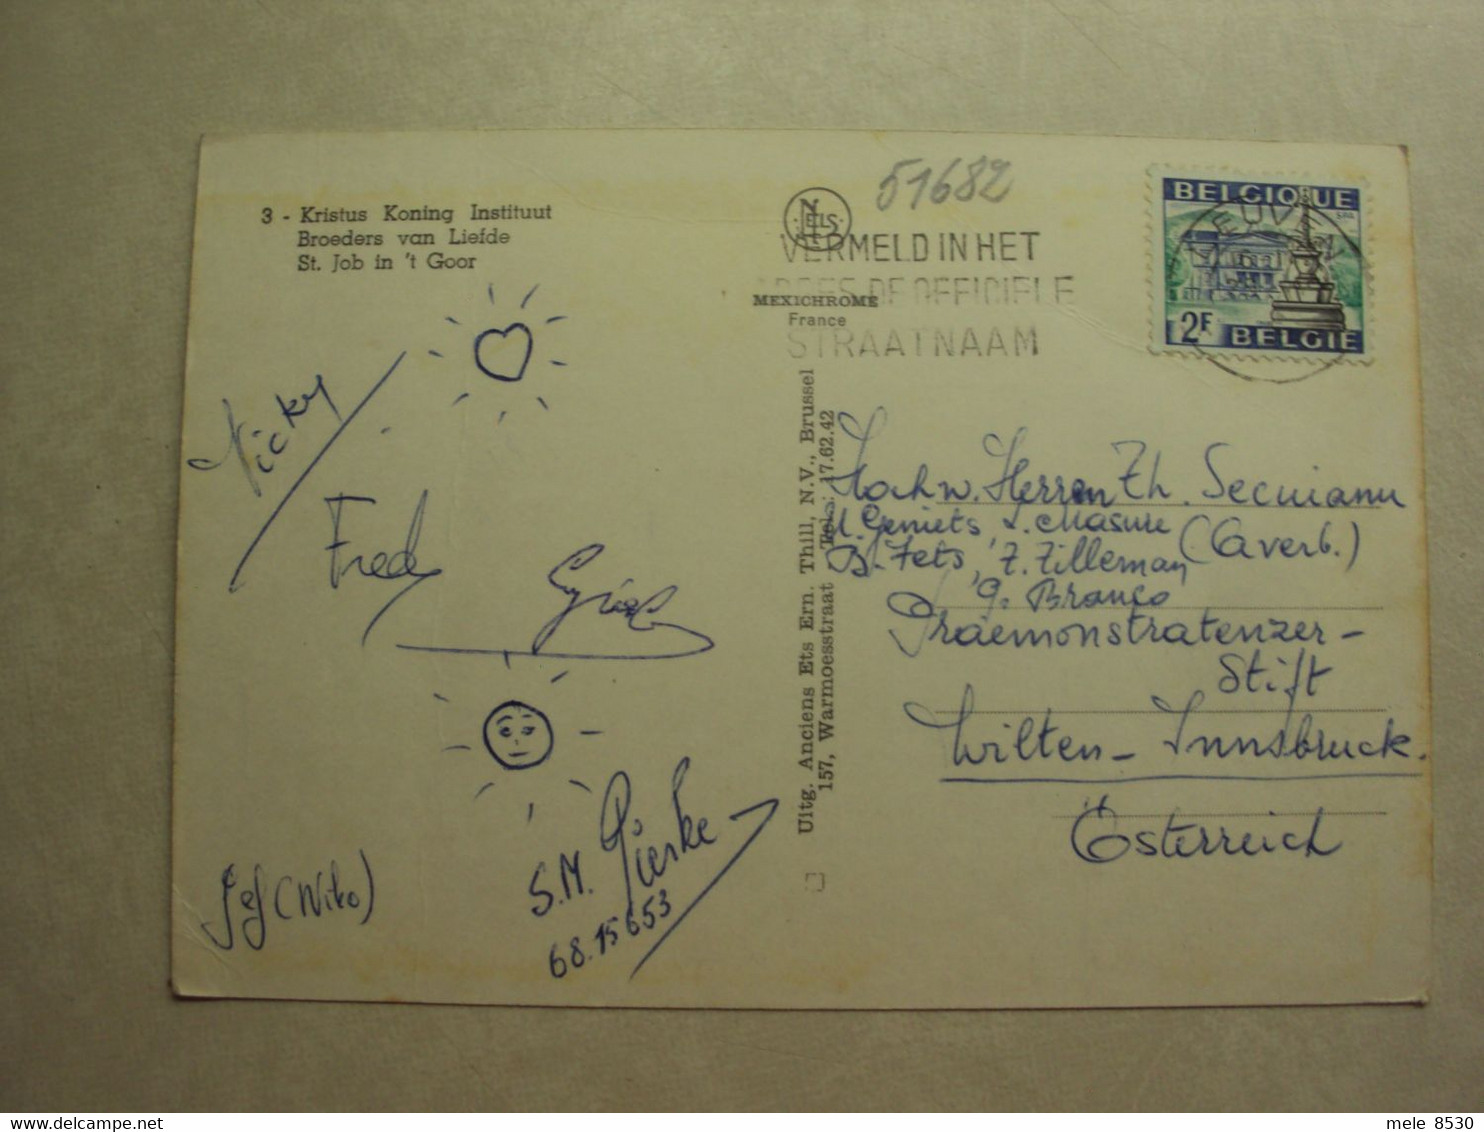 3 - Kristus Koning Instituut
Broeders van Liefde
St. Job in 't Goor
NELS
51682
VERMELD IN HET
ADRES DE OFFICIELE
STRAATNAAM
MEXICHROME
France
BELGIQUE
SPA
2F BELGIE
Vicky
Fred
S.M. Pierke
68.15653
Jef (Niko)
Uitg. Anciens Ets Ern. Thill, N.V., Brussel
157, Warmoesstraat Tel.: 17.62.42
Hochw. Herren Th. Secuianu
M. Geniets, L. Masure
(Averb.)
B. Fets, Z. Zilleman
G. Branco
Praemonstratenzer-
Stift
Wilten - Innsbruck.
Österreich
mele 8530